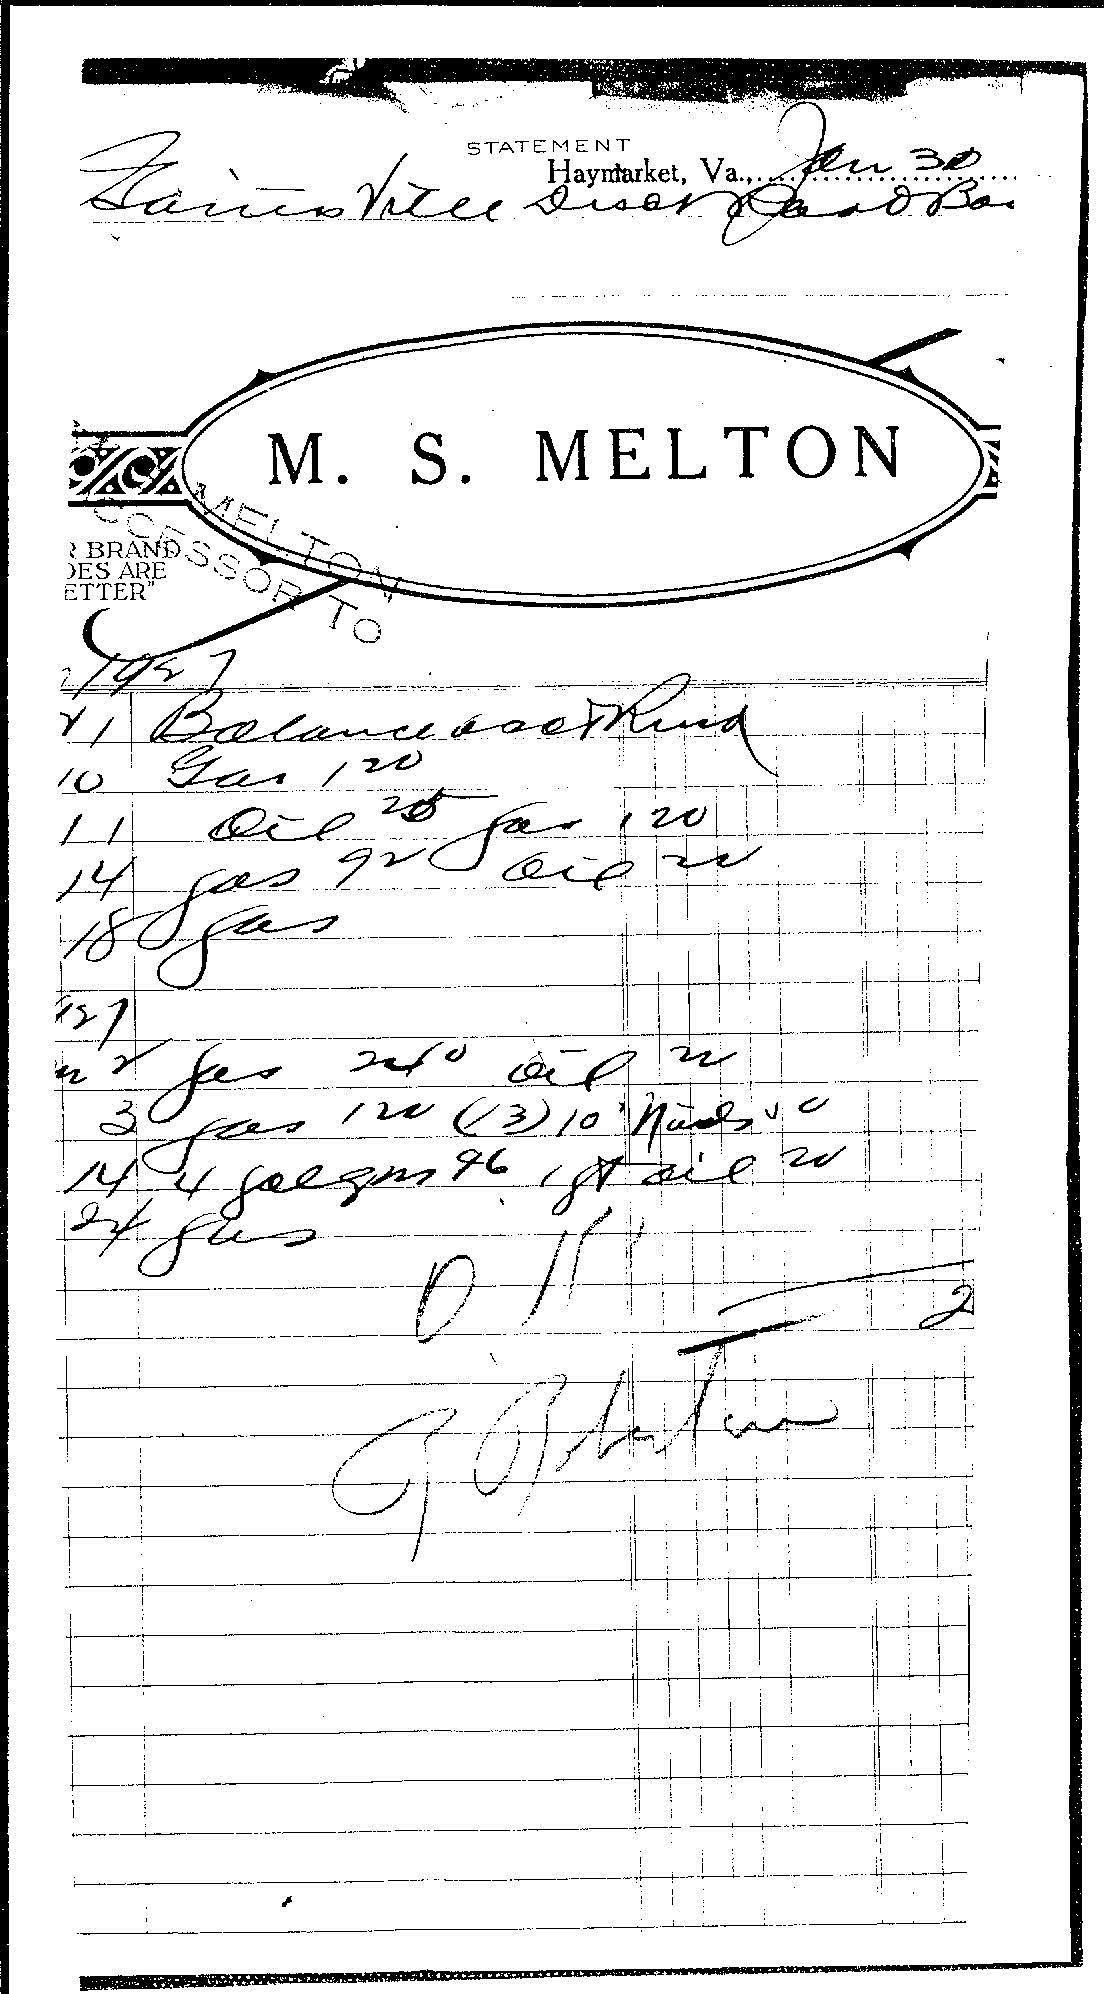 STATEMENT
Haymarket, Va., Jan 30
Gainesville Dist Road Bo
M. S. MELTON
MELTON
CCESSOR TO
R BRAND
DES ARE
ETTER"
1927
1 Balance acct Rend
10 Gas 120
11 Oil 25 gas 120
14 gas 92 oil 20
18 gas
927
2 gas 240 oil 20
3 gas 120 (13) 10
14 4 gal gas 96 1 qt oil 20
24 gas
OK
2